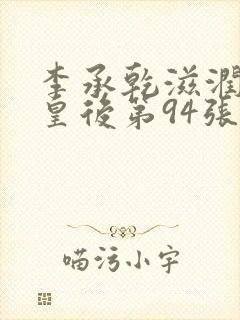 李承乾滋潤
皇後第94張
喵污小字